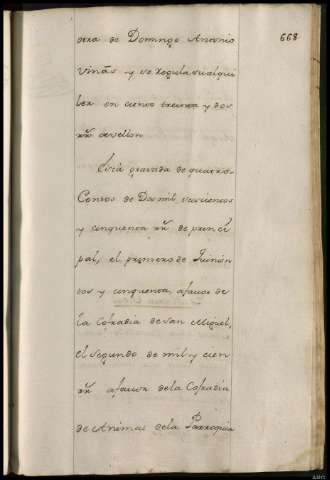 668
otra de Domingo Antonio
Viñas y se regula su alqui
ler en ciento treinta y dos
rr.s de vellon
Está gravada de quatro
Censos de Dos mil, seiscientos
y cinquenta rr.s de princi
pal, el primero de quinien
tos y cinquenta, a favor de
la Cofradia de san Miguel,
el segundo de mil y cien
rr.s a favor de la Cofradia
de Animas de la Parroquia